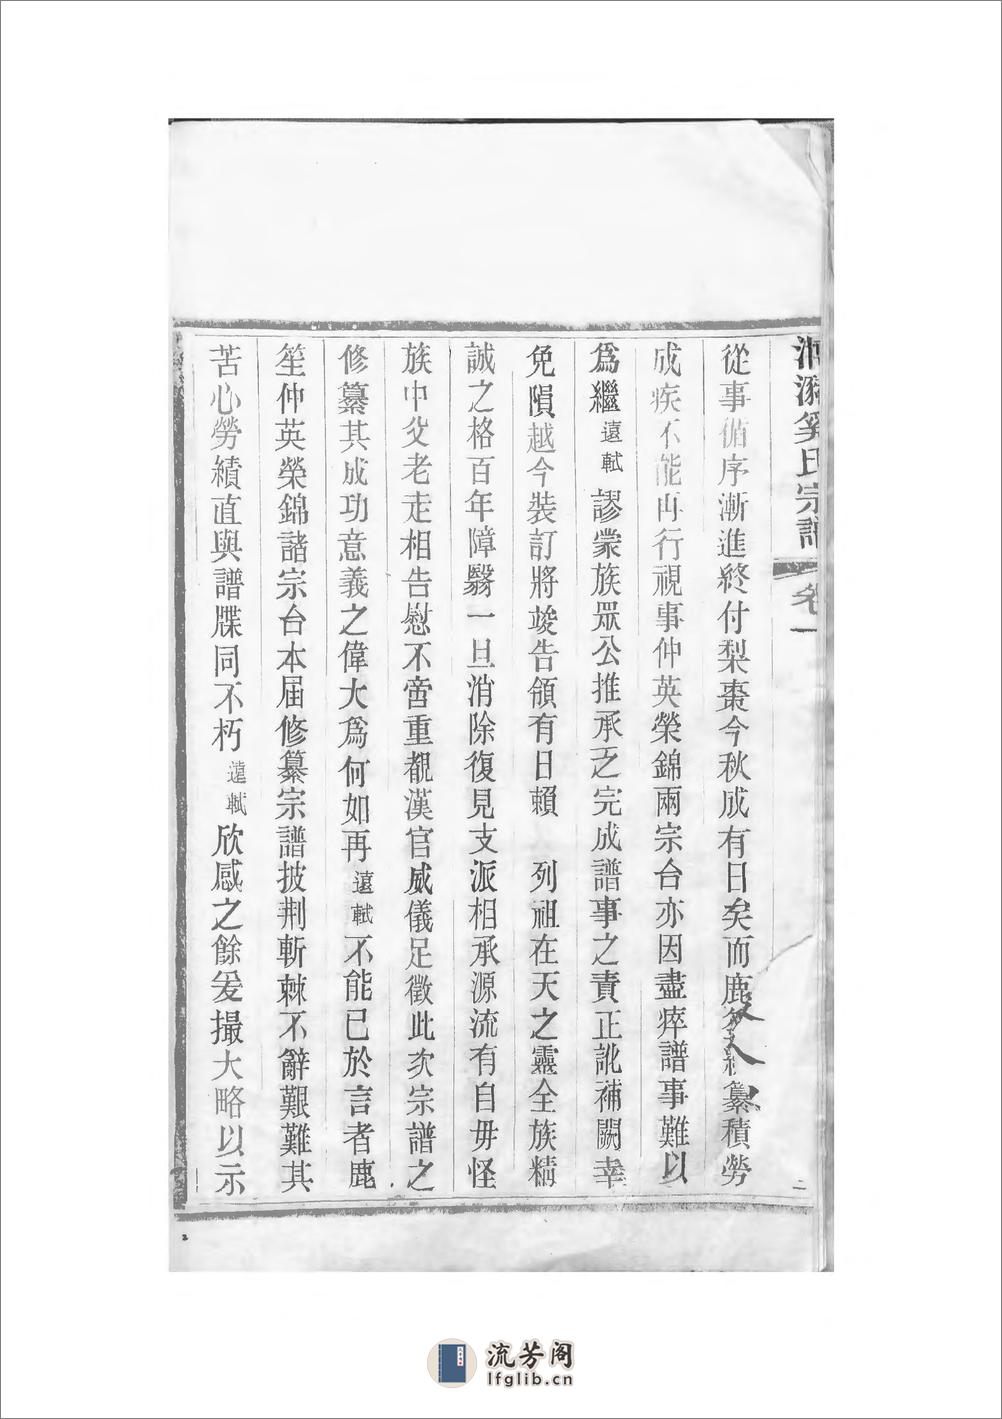 氏宗譜 卷一 二
從事循序漸進終付梨棗今秋成有日矣而鹿纂積勞
成疾不能再行視事仲英榮錦兩宗台亦因盡瘁譜事難以
爲繼遠軾謬蒙族眾公推承乏完成譜事之責正訛補闕幸
免隕越今裝訂將竣告領有日賴 列祖在天之靈全族精
誠之格百年障翳一旦消除復見支派相承源流有自毋怪
族中父老走相告慰不啻重覩漢官威儀足徵此次宗譜之
修纂其成功意義之偉大爲何如再遠軾不能已於言者鹿
笙仲英榮錦諸宗台本屆修纂宗譜披荆斬棘不辭艱難其
苦心勞績直與譜牒同不朽遠軾欣感之餘爰撮大略以示
2
流芳阁
lfglib.cn